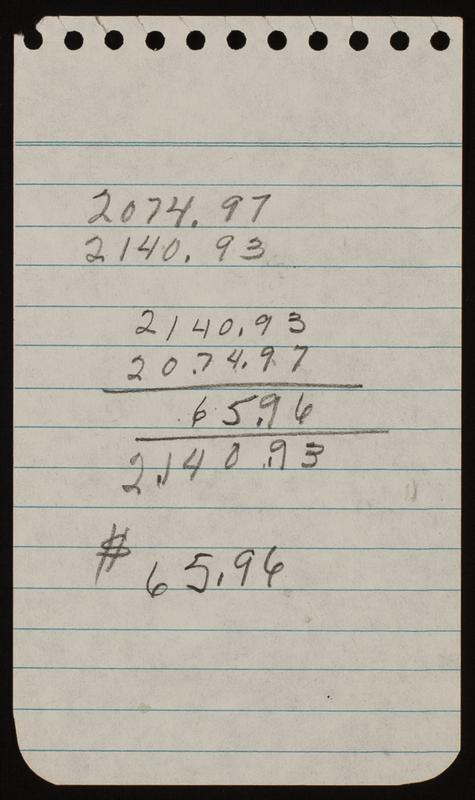 2074.97
2140.93
2140.93
2074.97
65.96
2,140.93
# 65.96